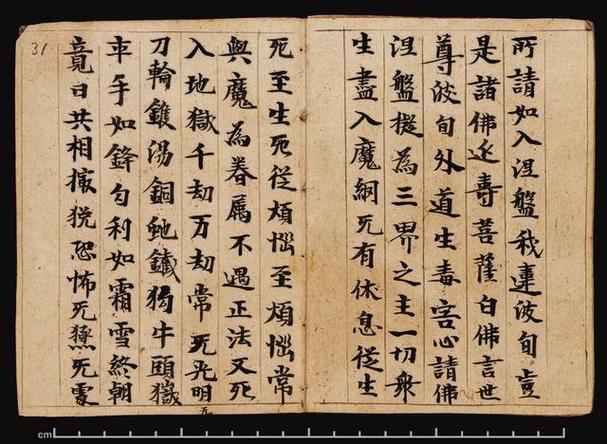 所請如入涅盤我違波旬豈
是諸佛壽菩薩白佛言世
尊波旬外道生毒害心請佛
涅盤擬為三界之主一切衆
生盡入魔網无有休息從生
31
死至生死從煩惱至煩惱常
與魔為眷属不遇正法又死
入地獄千劫万劫常无光明
刀輪鑊湯銅虵鐵狗牛頭獄
卒手如鋒勾利如霜雪終朝
竟日共相撮挩恐怖无无處
cm